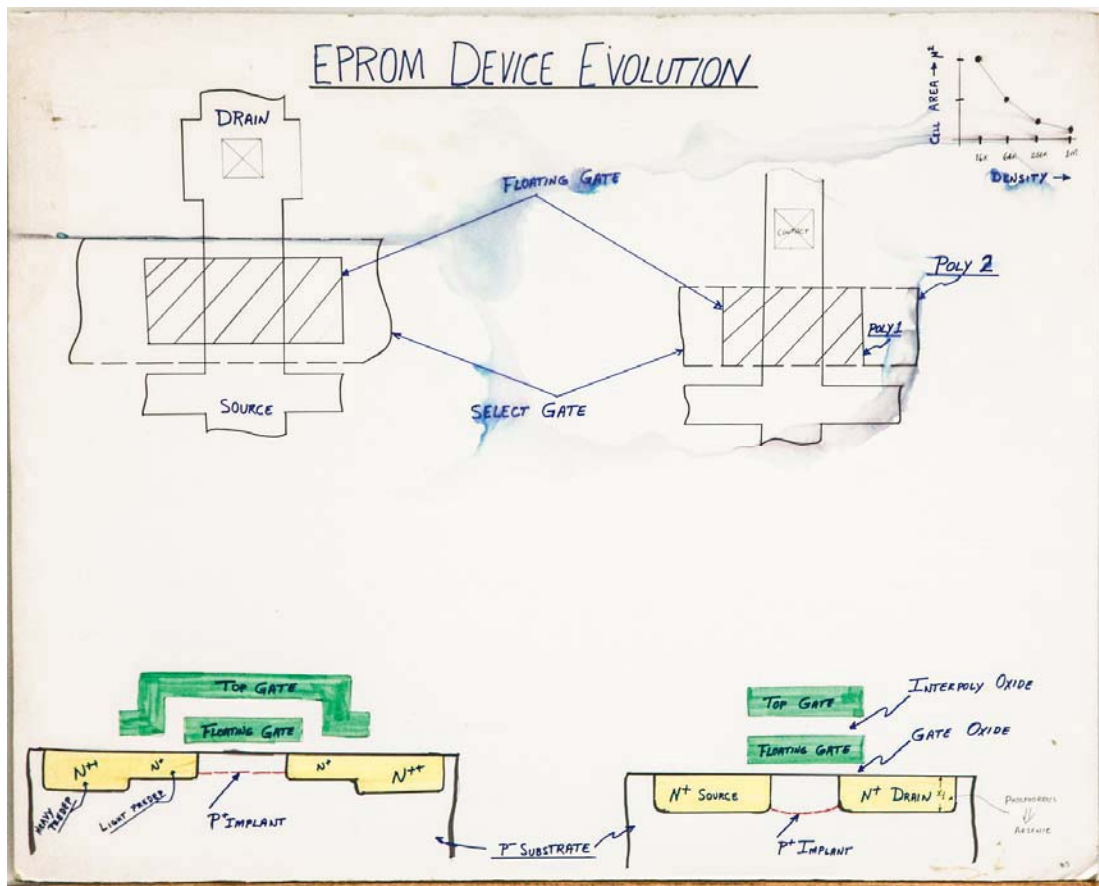 EPROM DEVICE EVOLUTION
CELL AREA → M²
16K 64K 256K 1M
DENSITY →
DRAIN
FLOATING GATE
CONTACT
POLY 2
POLY 1
SOURCE
SELECT GATE
TOP GATE
FLOATING GATE
N++
N+
N+
N++
HEAVY PREDEP
LIGHT PREDEP
P+ IMPLANT
P- SUBSTRATE
TOP GATE
INTERPOLY OXIDE
FLOATING GATE
GATE OXIDE
N+ SOURCE
N+ DRAIN
Xj
P+ IMPLANT
PHOSPHOROUS
⇓
ARSENIC